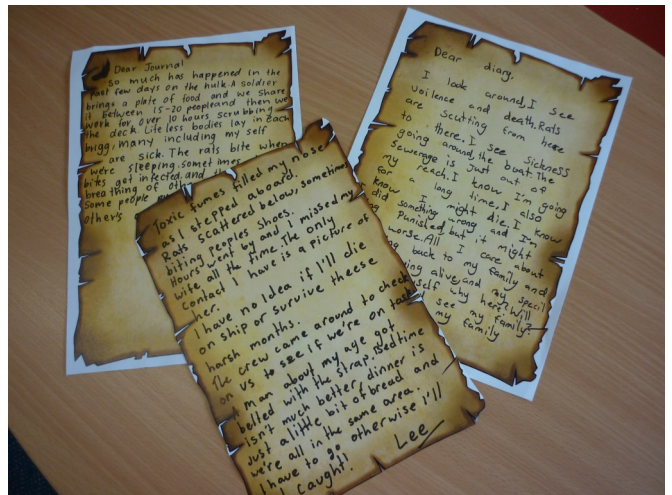 Dear Journal
So much has happened in the
past few days on the hulk. A soldier
brings a plate of food and we share
it between 15-20 people and then we
work for over 10 hours scrubbing
the deck. Lifeless bodies lay in each
brigg, many including my self
are sick. The rats bite when
were sleeping. Sometimes
bites got infected. and
breathing of
Some people
other's
Toxic fumes filled my nose
as I stepped aboard.
Rats scattered below, sometimes
biting peoples shoes.
Hours went by and I missed my
wife all the time. The only
contact I have is a picture of
her.
I have no Idea if I'll die
on ship or survive theese
harsh months.
The crew came around to check
on us to see if we're on task
A man about my age got
belted with the strap, Bedtime
isn't much better, dinner is
Just a little bit of bread and
we're all in the same area.
I have to go otherwise I'll
caught!
Lee
Dear diary,
I look around, I see
voilence and death, Rats
are scutting from here
to there. I see sickness
going around, the boat. The
sewerage is Just out of
my reach. I know i'm going
for long time. I also
know I might die. I know
did something wrong and I'm
Punished but it might
worse. All I care about
back to my family and
alive, and my
self why here? Will
see my family?
my family